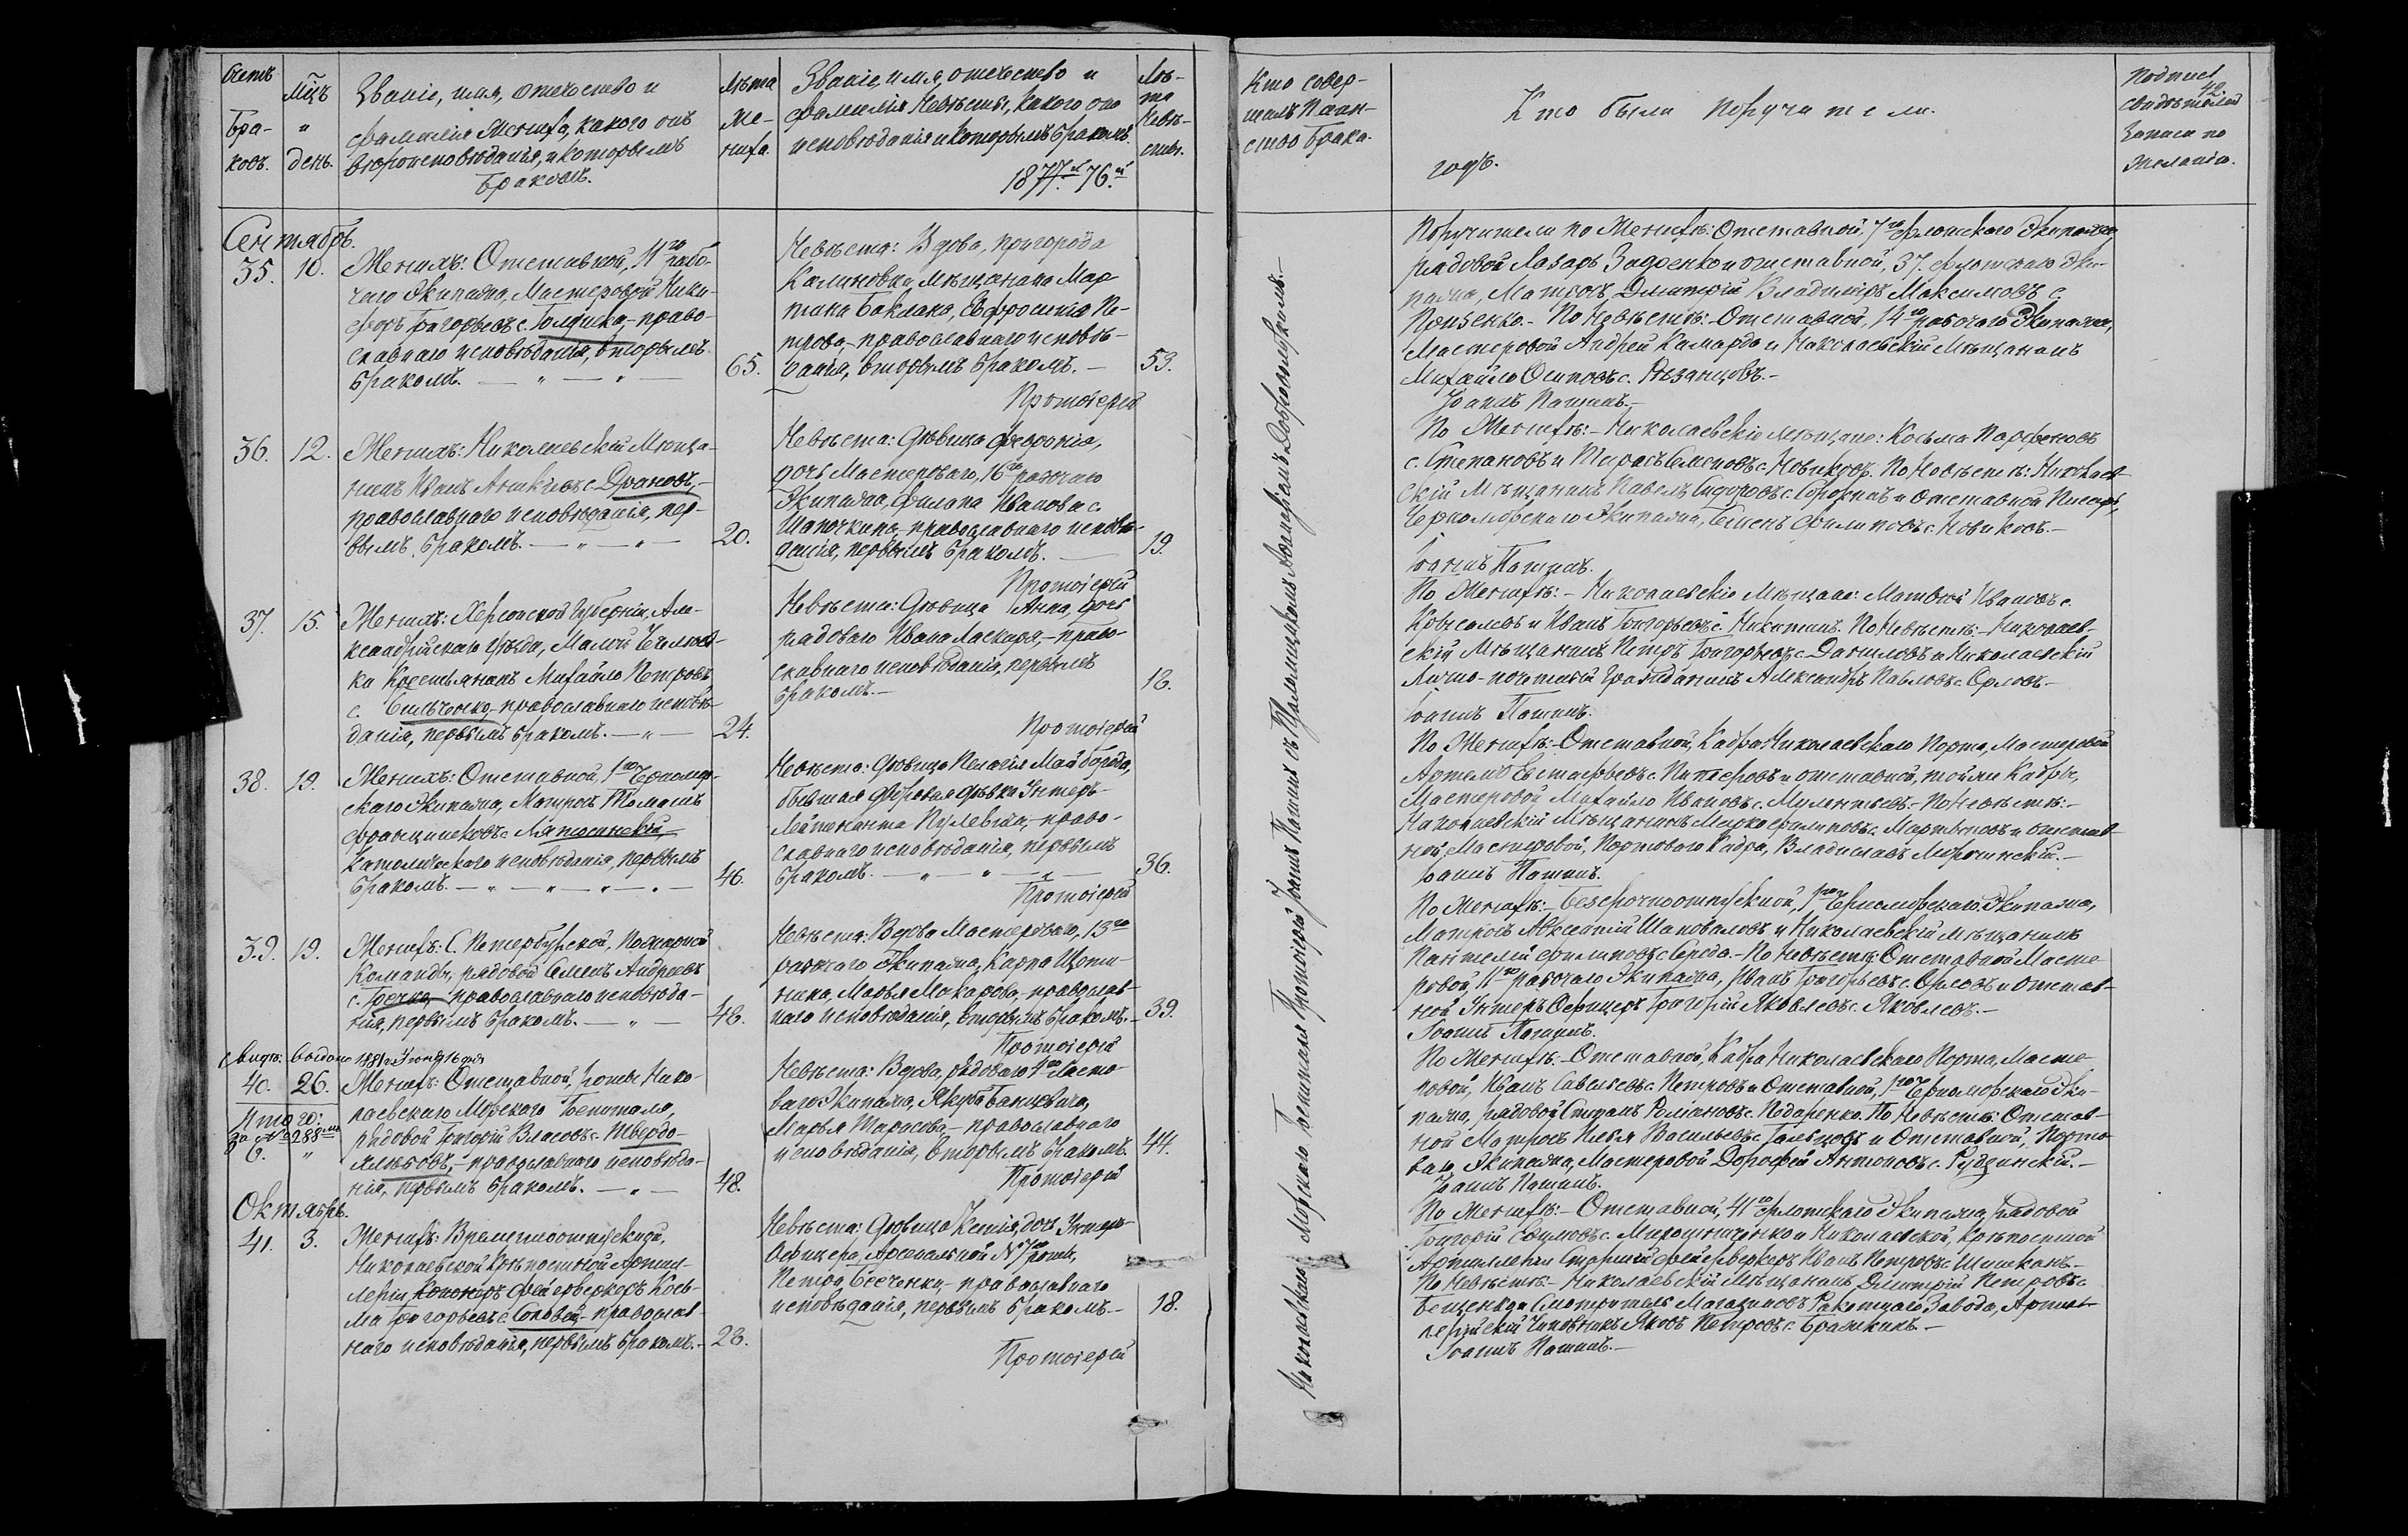 Счетъ
Бра-
ковъ.
Мѣцъ
и
день.
Званіе, имя, отечество и
фамилія Жениха, какого онъ
вѣроисповѣданія, и которымъ
бракомъ.
Лѣта
Же-
ниха.
Званіе, имя, отечество и
фамилія Невѣсты, какого оно
исповѣданія и которымъ бракомъ.
1877.й 76.й
Лѣ-
та
Невѣ-
сты.
Кто совер-
шалъ Таин-
ство брака.
Кто были поручители.
годъ.
42
Подписи
свидѣтелей
записи по
желанію.
Сентябрь.
35. 10.
Женихъ: Отставной, 11го рабо-
чаго Экипажа, Мастеровой Ники-
форъ Григорьевъ с. Голдинка, право-
славнаго исповѣданія, вторымъ
бракомъ. — " — " —
65.
Невѣста: Вдова, пригорода
Калиновка мѣщанина Мар-
тина Баклана, Евфросинія Пе-
трова, православнаго исповѣ-
данія, вторымъ бракомъ. —
53.
Протоіерей
36. 12.
Женихъ: Николаевскій Мѣща-
нинъ Иванъ Аникіевъ с. Драновъ, —
православнаго исповѣданія, пер-
вымъ бракомъ. — " — " —
20.
Невѣста: Дѣвица Февронія,
дочь Мастероваго, 16го рабочаго
Экипажа, Филипа Иванова с.
Шапочкина, православнаго исповѣ-
данія, первымъ бракомъ. —
19.
Протоіерей
37. 15.
Женихъ: Херсонской Губерніи, Але-
ксандрійскаго уѣзда, Малой
ки Крестьянинъ Михайло Петровъ
с. православнаго исповѣ-
данія, первымъ бракомъ. — " —
24.
Невѣста: Дѣвица Анна, дочь
рядоваго Ивана Ласкира, право-
славнаго исповѣданія, первымъ
бракомъ. —
18.
Протоіерей
38. 19.
Женихъ: Отставной, 1го Черномор-
скаго Экипажа, Матросъ Томашъ
Францишковъ с.
Католическаго исповѣданія, первымъ
бракомъ. — " — " — " —
46.
Невѣста: Дѣвица Пелагія Майборода,
бывшая дворовая дѣвка Унтеръ-
Лейтенанта Пулевича, право-
славнаго исповѣданія, первымъ
бракомъ. — " — " —
36.
Протоіерей
39. 19.
Женихъ: С. Петербургской, Пожарной
Команды, рядовой Семенъ Андреевъ
с. Гречка, православнаго исповѣда-
нія, первымъ бракомъ. — " —
48.
Невѣста: Вдова Мастероваго, 13го
рабочаго Экипажа, Карпа Щети-
нина, Марья Макарова, православ-
наго исповѣданія, вторымъ бракомъ. —
39.
Протоіерей
Свидѣ: выдано 1881 г. Іюня 16 дня
за № 288мъ
40. 26.
Женихъ: Отставной, роты Нико-
лаевскаго Морскаго Госпиталя,
рядовой Григорій Власовъ с. Твердо-
хлѣбовъ, православнаго исповѣда-
нія, первымъ бракомъ. — " —
48.
Итого:
6. "
Невѣста: Вдова, рядоваго 4го Ласто-
ваго Экипажа, Якуба Банцевича,
Марья Тарасова, православнаго
исповѣданія, вторымъ бракомъ.
44.
Протоіерей
Октябрь.
41. 3.
Женихъ: Временноотпускной,
Николаевской Крѣпостной Артил-
леріи, Канониръ Фейерверкеръ Кось-
ма Григорьевъ с. Соловей, православ-
наго исповѣданія, первымъ бракомъ. —
28.
Невѣста: Дѣвица Ксенія, дочь Унтеръ-
Офицера, Арсенальной № 7й роты,
Петра Евсченки, православнаго
исповѣданія, первымъ бракомъ. —
18.
Протоіерей
Николаевскаго Морскаго Госпиталя Протоіерей Іоаннъ Патинъ съ Псаломщикомъ Александромъ —
Поручители по Женихѣ: Отставной, 7го Флотскаго Экипажа,
рядовой Лазарь Задоенко и отставной, 37. Флотскаго Эки-
пажа, Матросъ, Дмитрій Владиміръ Максимовъ с.
Проценко. — По Невѣстѣ: Отставной, 14го рабочаго Экипажа,
Мастеровой Андрей Камарда и Николаевскій Мѣщанинъ
Михайло Осиповъ с. Рѣзанцовъ. —
Іоаннъ Патинъ. —
По Женихѣ: — Николаевскіе мѣщане: Косьма Парфеновъ
с. Степановъ и Тарасъ Семеновъ с. Новиковъ. По Невѣстѣ: Николаев-
скій Мѣщанинъ Павелъ Сидоровъ с. Сорокинъ и Отставной Писарь,
Черноморскаго Экипажа, Филиповъ с. Новиковъ. —
Іоаннъ Патинъ.
По Женихѣ: — Николаевскіе Мѣщане: Матвѣй Ивановъ с.
и Иванъ Григорьевъ с. Никитинъ. По Невѣстѣ: — Николаев-
скій Мѣщанинъ Петръ Григорьевъ с. Даниловъ и Николаевскій
Лично-почетный Гражданинъ Александръ Павловъ с. Орловъ. —
Іоаннъ Патинъ.
По Женихѣ: — Отставной, Кадра Николаевскаго Порта, Мастеровой
Артемъ Евстафьевъ с. и отставной, той же Кадры,
Мастеровой Михайло Ивановъ с. — По Невѣстѣ: —
Николаевскій Мѣщанинъ Марко Филиповъ с. Мартыновъ и отстав-
ной, Мастеровой, Портоваго Кадра, Владиславъ Мрочинскій. —
Іоаннъ Патинъ.
По Женихѣ: — Безсрочноотпускной, 1го Черноморскаго Экипажа,
Матросъ Авксентій Шаповаловъ и Николаевскій мѣщанинъ
Пантелей Филиповъ с. Середа. — По Невѣстѣ: Отставной Масте-
ровой, 11го рабочаго Экипажа, Иванъ Григорьевъ с. Орловъ и отстав-
ной Унтеръ Офицеръ Григорій Яковлевъ с. Яковлевъ. —
Іоаннъ Патинъ.
По Женихѣ: — Отставной, Кадра Николаевскаго Порта, Масте-
ровой, Иванъ Савельевъ с. Петровъ и Отставной, 1го Черноморскаго Эки-
пажа, рядовой Степанъ Романовъ с. Подаренко. По Невѣстѣ: Отстав-
ной Матросъ Илья Васильевъ с. Гальцовъ и Отставной, Порто-
ваго Экипажа, Мастеровой Дорофей Антоновъ с. Рудзинскій. —
Іоаннъ Патинъ.
По Женихѣ: — Отставной, 41го Флотскаго Экипажа, рядовой
Григорій с. Мирошниченко и Николаевской, Крѣпостной
Артиллеріи Старшій Фейерверкеръ Иванъ Петровъ с. Шишканъ. —
По Невѣстѣ: — Николаевскій Мѣщанинъ Дмитрій Петровъ с.
Бещенко и Смотритель Магазиновъ Ракетнаго Завода, Артил-
лерійскій Чиновникъ Яковъ Петровъ с. Бражкинъ. —
Іоаннъ Патинъ. —